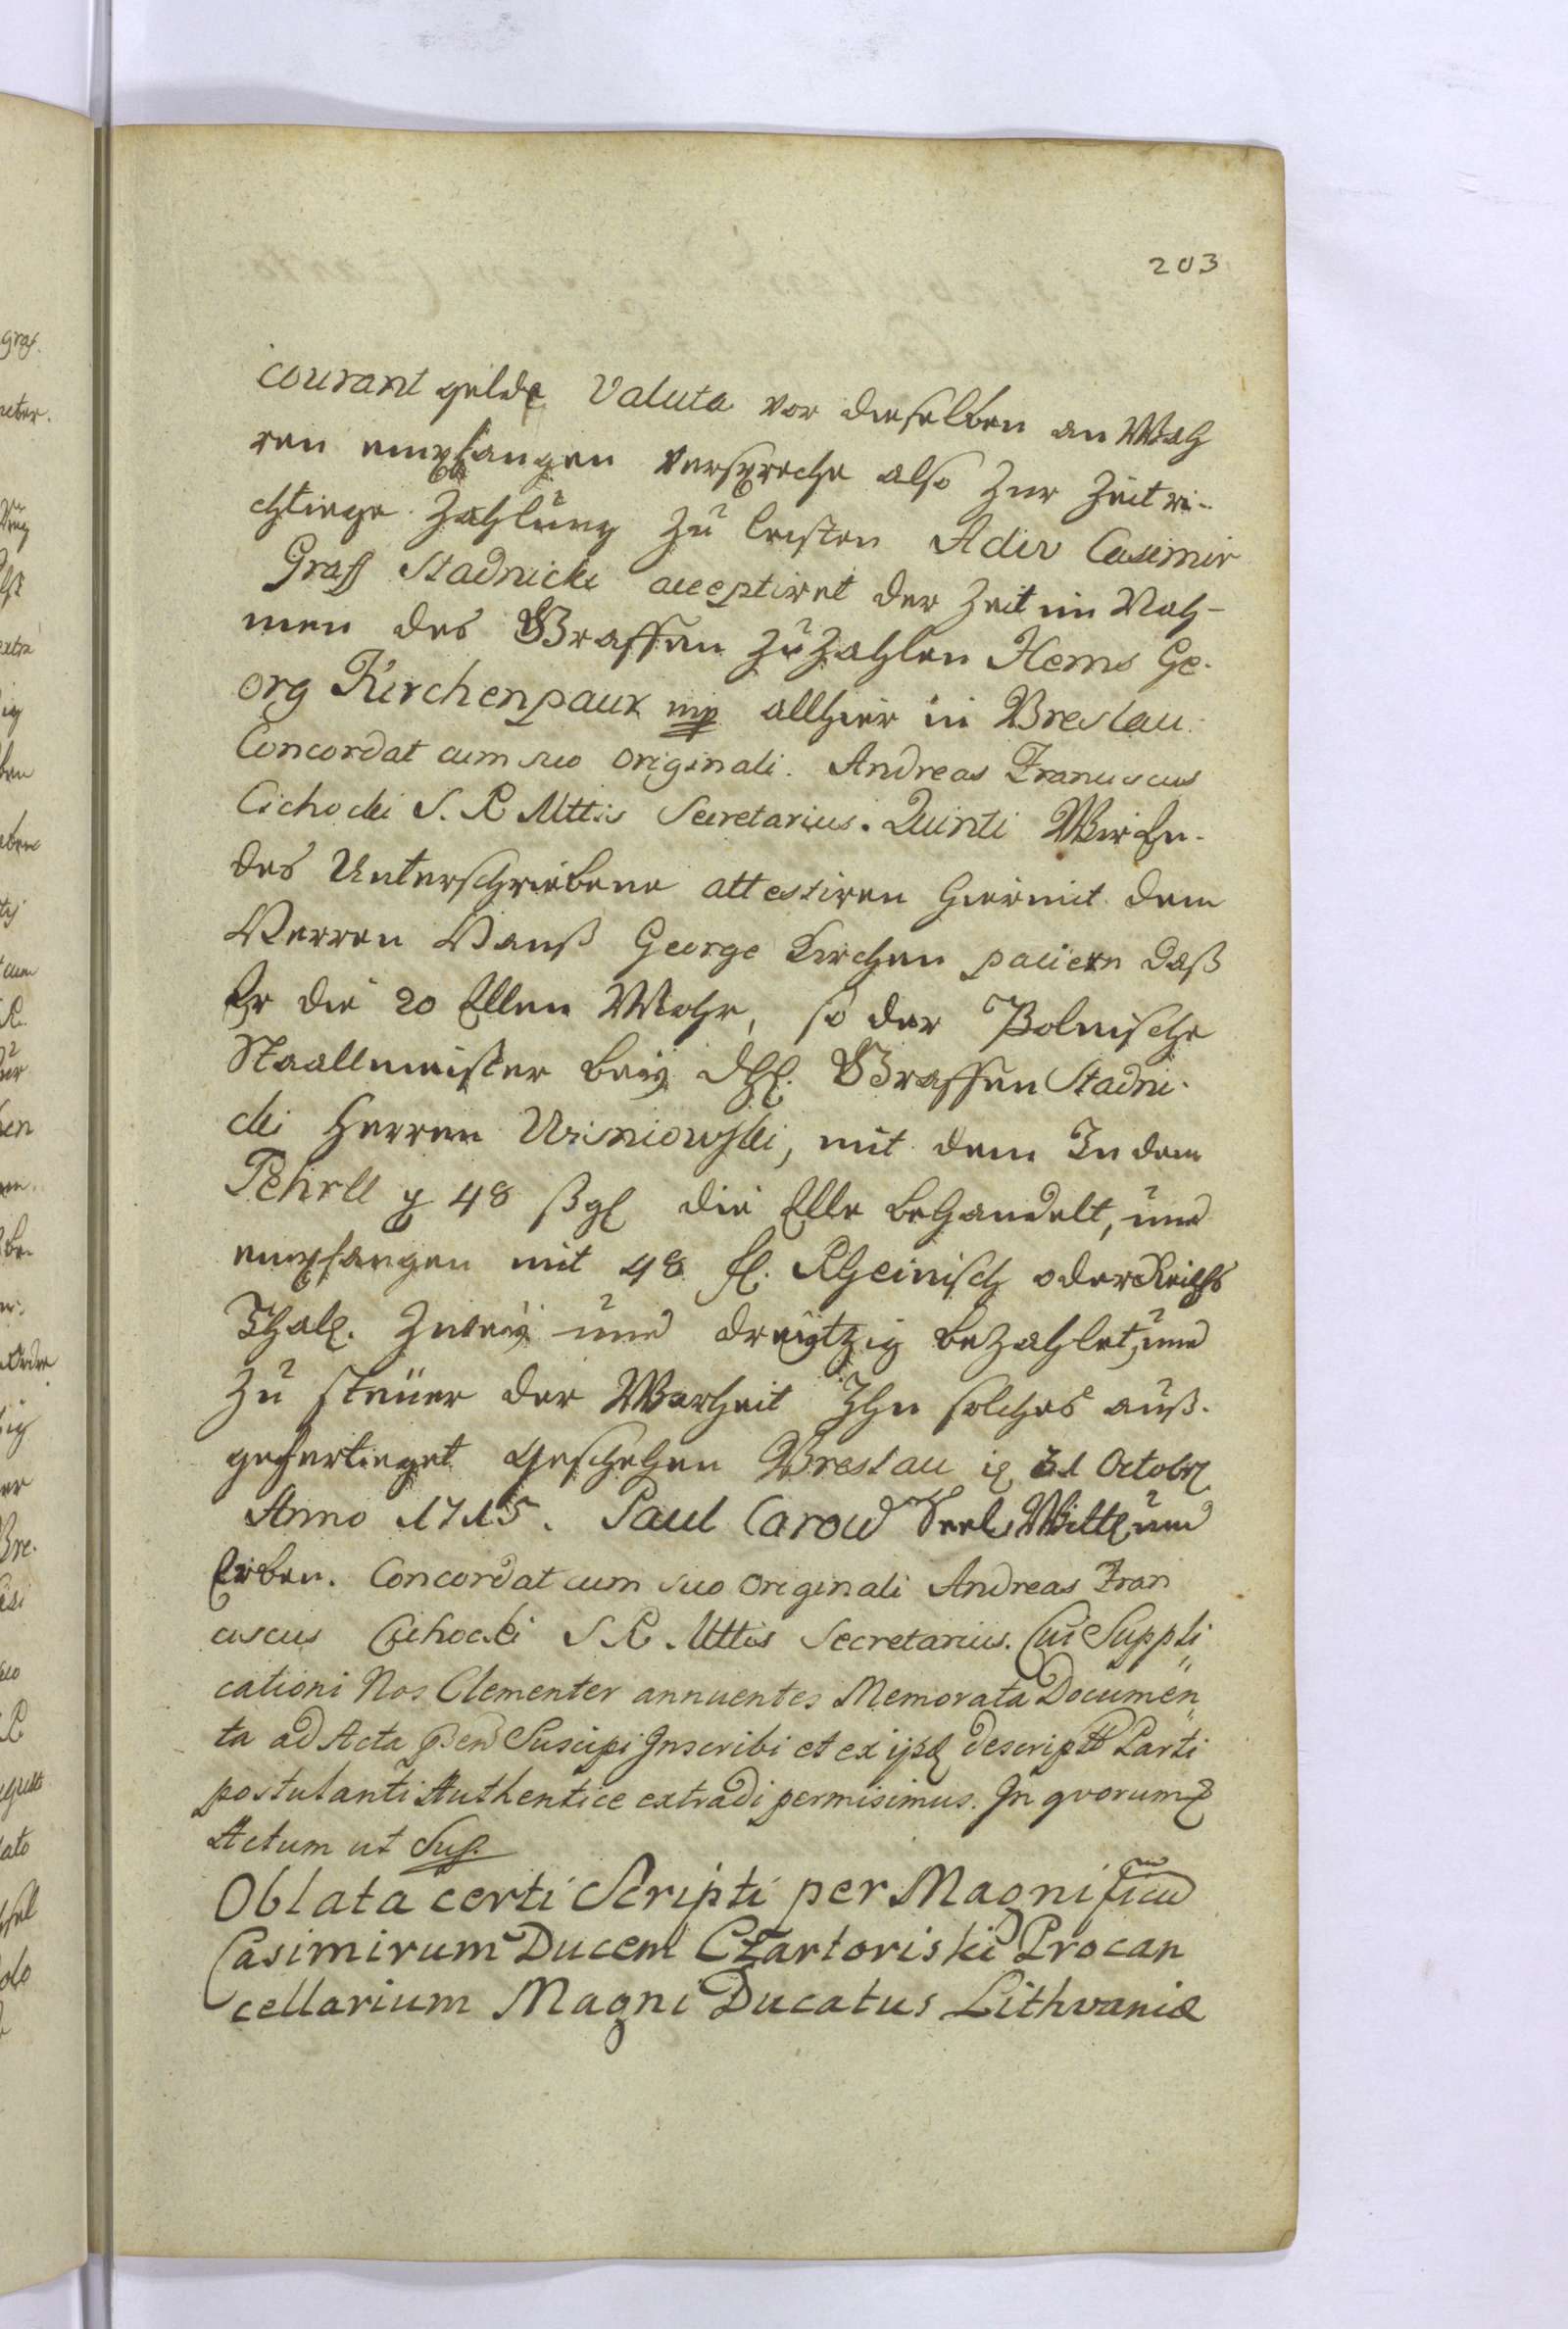 203
courant gelde Valuta vor dieselben an Wah
ren empfangen verspreche also zur Zeit ri-
chtiege Zahlung zu leisten Adio Casimir
Graff Stadnicki acceptiret der Zeit im Nah-
men des Graffen zu zahlen Herns Ge-
org Kirchenpaur mp allhier in Breslau.
Concordat cum suo originali. Andreas Franciscus
Cichocki S. R Mttis Secretarius. Quinti Wir En-
des Unterschriebene attestiren hiermit dem
Herren Hanß George Kirchen pauern daß
Er die 20 Ellen Mohr, so der Polnische
Staallmeister beÿ Graffen Stadni-
cki Herren Wisniowski, mit dem Juden
48 ßgl die Elle behandelt, und
empfangen mit 48 fl. Rheinisch oder Reichs
Thal. Zweÿ und dreÿtzig bezahlet, und
zu steuer der Warheit Ihn solches auß-
gefertieget Geschehen Breslau 31 Octobr
Anno 1715. Paul Carow Seel. Witt. und
Erben. Concordat cum suo originali Andreas Fran
ciscus Cichocki S R Mttis Secretarius. Cui Suppli
cationi Nos Clementer annuentes Memorata Documen
ta ad Acta Suscipi Inscribi et ex descript Parti
postulanti Authentice extradi permisimus. In qvorum
Actum ut Sup.
Oblata certi Scripti per Magnificu
Casimirum Ducem Czartoriski Procan
cellarium Magni Ducatus Lithvaniæ